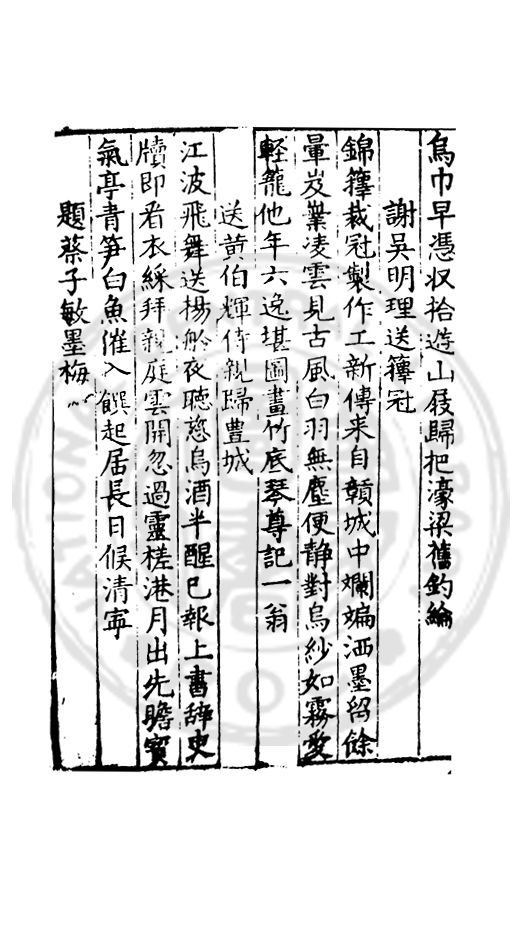 烏巾早憑収拾遊山屐歸把濠梁舊釣綸
謝吳明理送籜冠
錦籜裁冠製作工新傳来自贛城中斕斒洒墨留餘
暈岌嶪凌雲見古風白羽無塵便静對烏紗如霧愛
軽籠他年六逸堪圖畫竹底琴尊記一翁
送黄伯輝侍親歸豊城
江波飛舞送楊舲夜聴慈烏酒半醒已報上書辞史
牘即看衣綵拜親庭雲開忽過靈槎港月出先瞻寳
氣亭青笋白魚催入饌起居長日候清寧
題蔡子敏墨梅